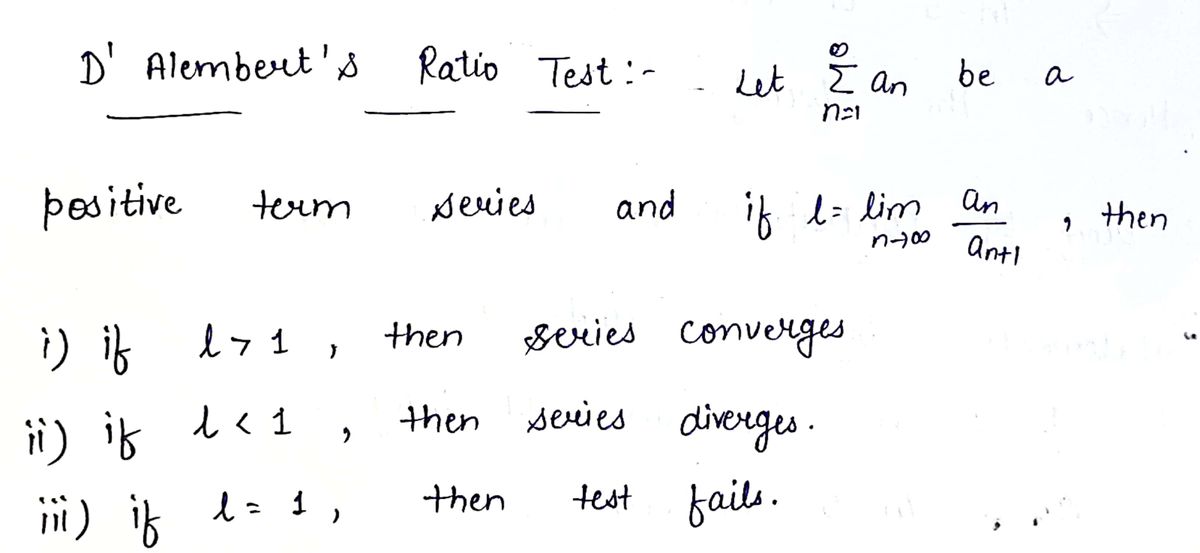 D' Alembert's Ratio Test :- Let ∞∑n=1 an be a
positive term series and if l = lim n→∞ an/an+1 , then
i) if l > 1 , then series converges
ii) if l < 1 , then series diverges.
iii) if l = 1 , then test fails.